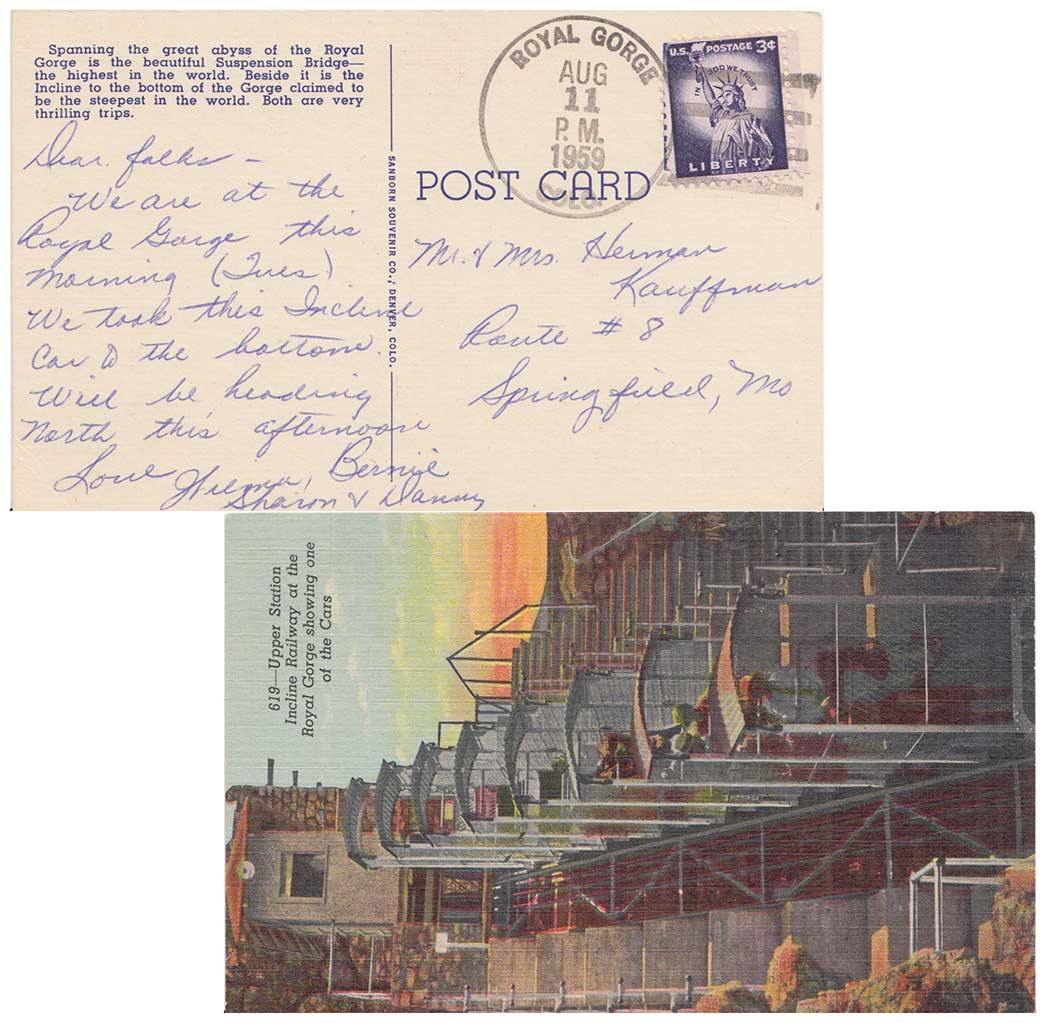 Spanning the great abyss of the Royal
Gorge is the beautiful Suspension Bridge—
the highest in the world. Beside it is the
Incline to the bottom of the Gorge claimed to
be the steepest in the world. Both are very
thrilling trips.
Dear folks –
We are at the
Royal Gorge this
morning (Tues)
We took this Incline
Car to the bottom.
Will be heading
North this afternoon
Love Wilma, Bernie
Sharon & Danny
SANBORN SOUVENIR CO., DENVER, COLO.
ROYAL GORGE
AUG
11
P.M.
1959
COLO.
U.S. POSTAGE 3¢
IN GOD WE TRUST
LIBERTY
POST CARD
Mr. & Mrs. Herman
Kauffman
Route # 8
Springfield, Mo
619—Upper Station
Incline Railway at the
Royal Gorge showing one
of the Cars